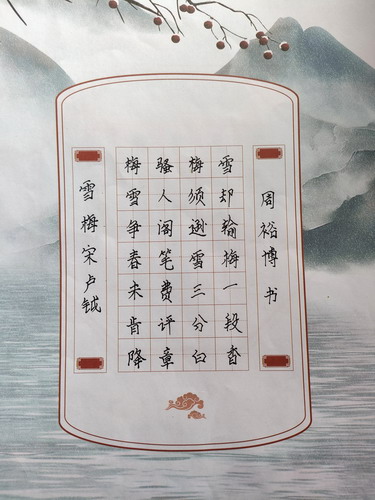 雪梅宋卢钺
梅雪争春未肯降
骚人阁笔费评章
梅须逊雪三分白
雪却输梅一段香
周裕博书